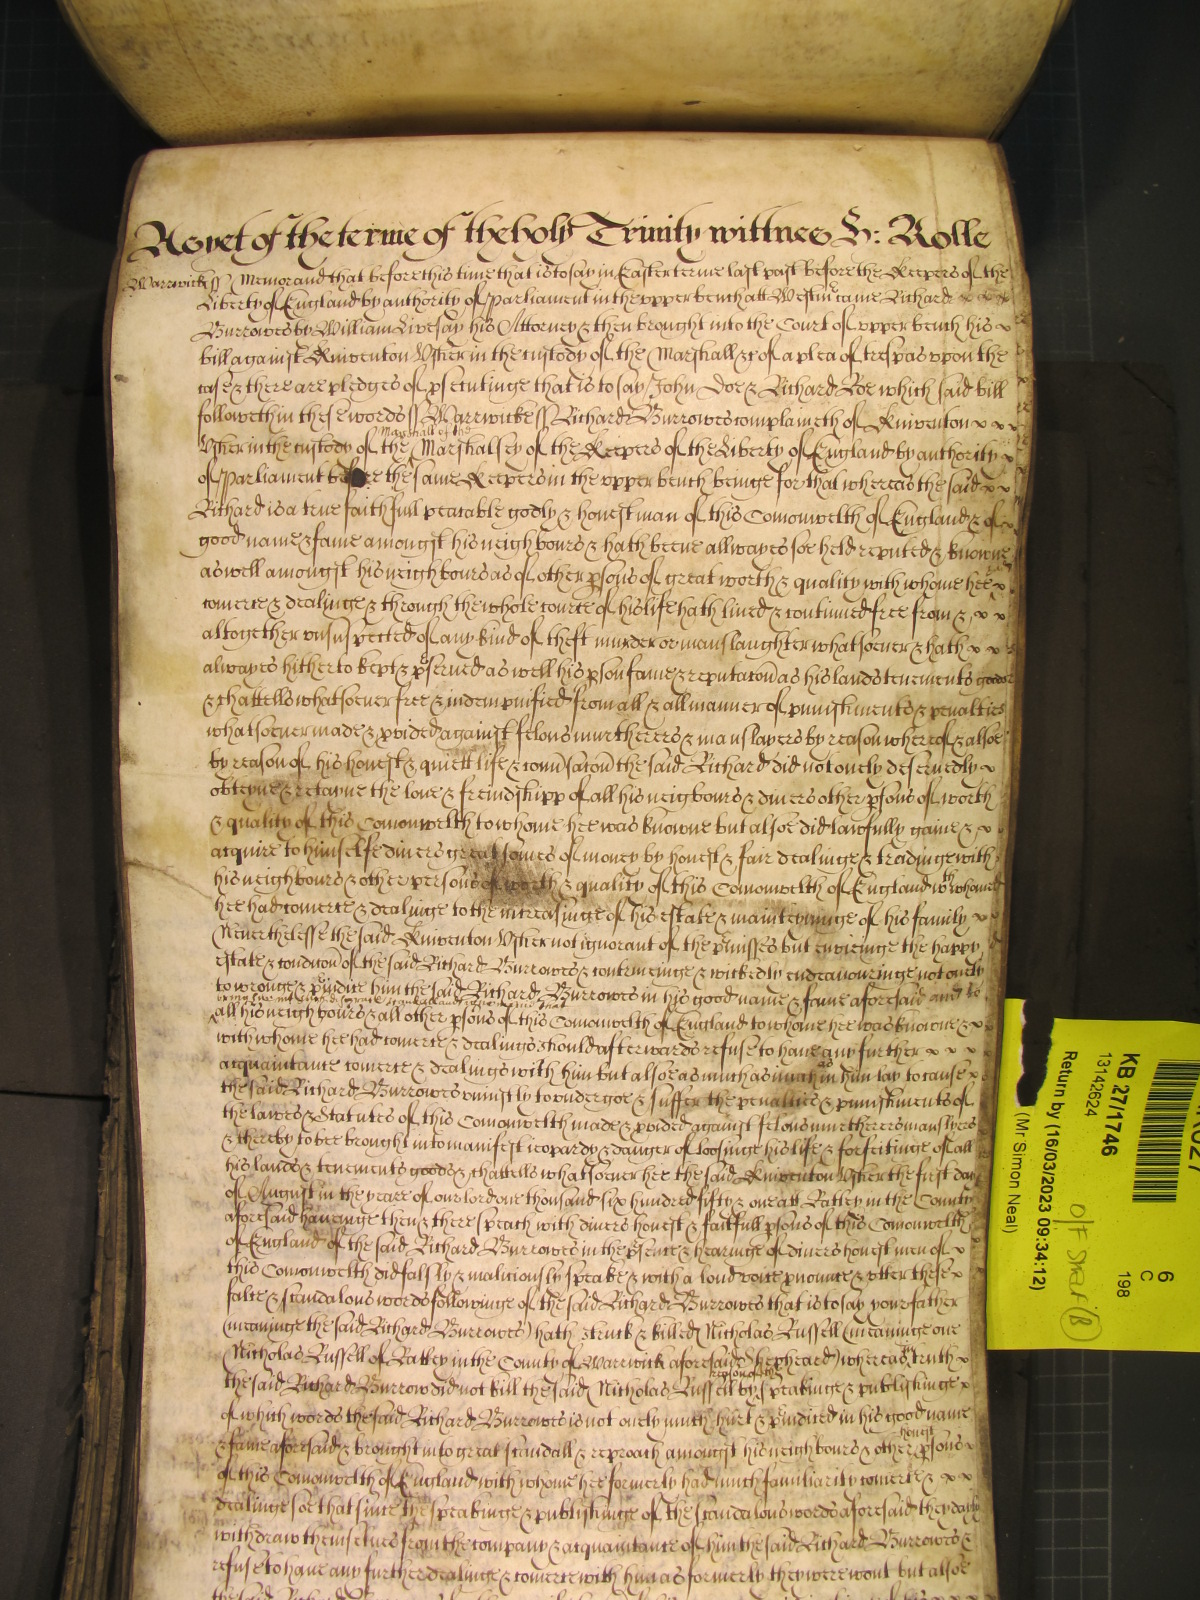 As yet of the terme of the holy Trinity wittnes H: Rolle
Warrwicke ss Memorand that before this time that is to say in Easter terme last past before the Keepers of the
Liberty of England by authority of Parliament in the upper bench att Westm came Richard
Burrowes by William Livesay his Attorney & then brought into the Court of upper bench his
bill against Kniventon Usher in the custody of the Marshall &c of a plea of trespas upon the
case & there are pledges of psecutinge that is to say John Doe & Richard Roe which said bill
followeth in these words ss Warrwicke ss Richard Burrowes complaineth of Kniventon
Usher in the custody of the Marshall of the Marshalsey of the Keepers of the Liberty of England by authority
of Parliament before the same Keepers in the upper bench beinge for that whereas the said
Richard is a true faithfull peacable godly & honest man of this Comonwelth of England & of
good name & fame amongst his neighbours & hath beene allwayes soe held reputed & knowne
as well amongst his neighbours as of other psons of great worth & quality with whome hee had
comerce & dealinge & through the whole course of his life hath lived & continued free from &
altogether unsuspected of any kind of theft murder or manslaughter whatsoever & hath
alwayes hitherto kept & pserved as well his pson fame & reputacon as his lands tenements goods
& chattells whatsoever free & indempnified from all & all manner of punishments & penalties
whatsoever made & pvided against felons murtherers & manslayers by reason whereof & alsoe
by reason of his honest & quiett life & convsacon the said Richard did not onely deservedly
obteyne & retayne the love & freindshipp of all his neigbours & divers other psons of worth
& quality of this Comonwelth to whome hee was knowne but alsoe did lawfully gaine &
acquire to himselfe divers great somes of money by honest & fair dealinge & tradinge with
his neighbours & other persons of worth & quality of this Comonwelth of England wth whome
hee had comerce & dealinge to the increasinge of his estate & mainteyninge of his family
Neverthelesse the said Kniventon Usher not ignorant of the pmisses but envieinge the happy
estate & condicon of the said Richard Burrowes & contriveinge & wickedly endeavouringe not onely
to wronge & piudice him the said Richard Burrowes in his good name & fame aforesaid and to
all his neighbours & all other psons of this Comonwelth of England to whome hee was knowne &
with whome hee had comerce & dealings should afterwards refuse to have any further
acquaintance comerce & dealings with him but alsoe as much as in him lay to cause
the said Richard Burrowes uniustly to undergoe & suffer the penalties & punishments of
the lawes & Statutes of this Comonwelth made & pvided against felons murtherers manslyers
& thereby to bee brought into manifest ieopardy & danger of loosinge his life & forfeitinge of all
his lands & tenements goods & chattells whatsoever hee the said Kniventon Usher the first day
of August in the yeare of our lord one thousand six hundred fifty & one att Ratley in the County
aforesaid haveinge then & there speach with divers honest & faithfull psons of this Comonwelth
of England of the said Richard Burrowes in the psence & hearinge of divers honest men of
this Comonwelth did falsly & maliciously speake & with a loud voice pnounce & utter these
false & scandalous words followinge of the said Richard Burrowes that is to say your father
(meaninge the said Richard Burrowes) hath struck & killed Nicholas Russell (meaninge one
Nicholas Russell of Ratley in the County of Warrwick aforesaid shepheard) whereas in truth
the said Richard Burrow did not kill the said Nicholas Russell by reason of the speakinge & publishinge
of which words the said Richard Burrowes is not onely much hurt & piudiced in his good name
& fame aforesaid & brought into great scandall & reproach amongst his neighbours & other honest psons
of this Comonwelth of England with whome hee formerly had much familiarity comerce &
dealinge soe that since the speakinge & publishinge of the scandalous words aforesaid they dayly
withdraw themselves from the company & acquaintance of him the said Richard Burrowes &
refuse to have any further dealinge & comerce with him as formerly they were wont but alsoe
KB 27/1746
13142624
Return by (16/03/2023 09:34:12)
(Mr Simon Neal)
6
C
198